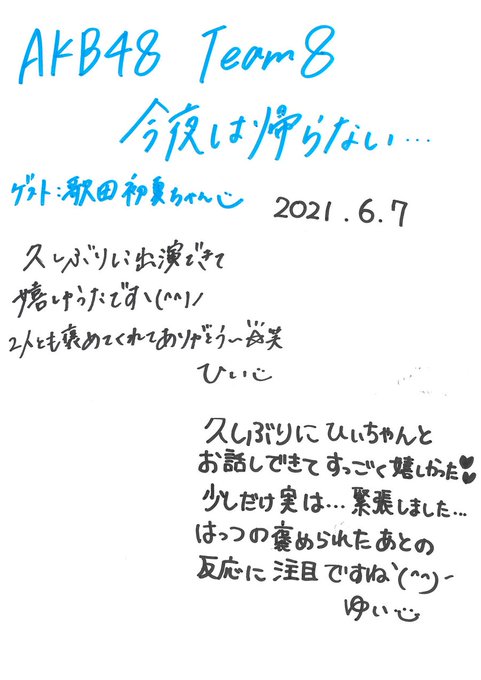 AKB48 Team8
今夜は帰らない…
ゲスト:歌田初夏ちゃん
2021.6.7
久しぶりに出演できて
嬉しゆうたですヽ(^^)ノ
2人とも褒めてくれてありがとう〜笑
ひぃ
久しぶりにひぃちゃんと
お話しできてすっごく嬉しかった♥♥
少しだけ実は…緊張しました…
はっつの褒められたあとの
反応に注目ですね`(^^)-
ゆい